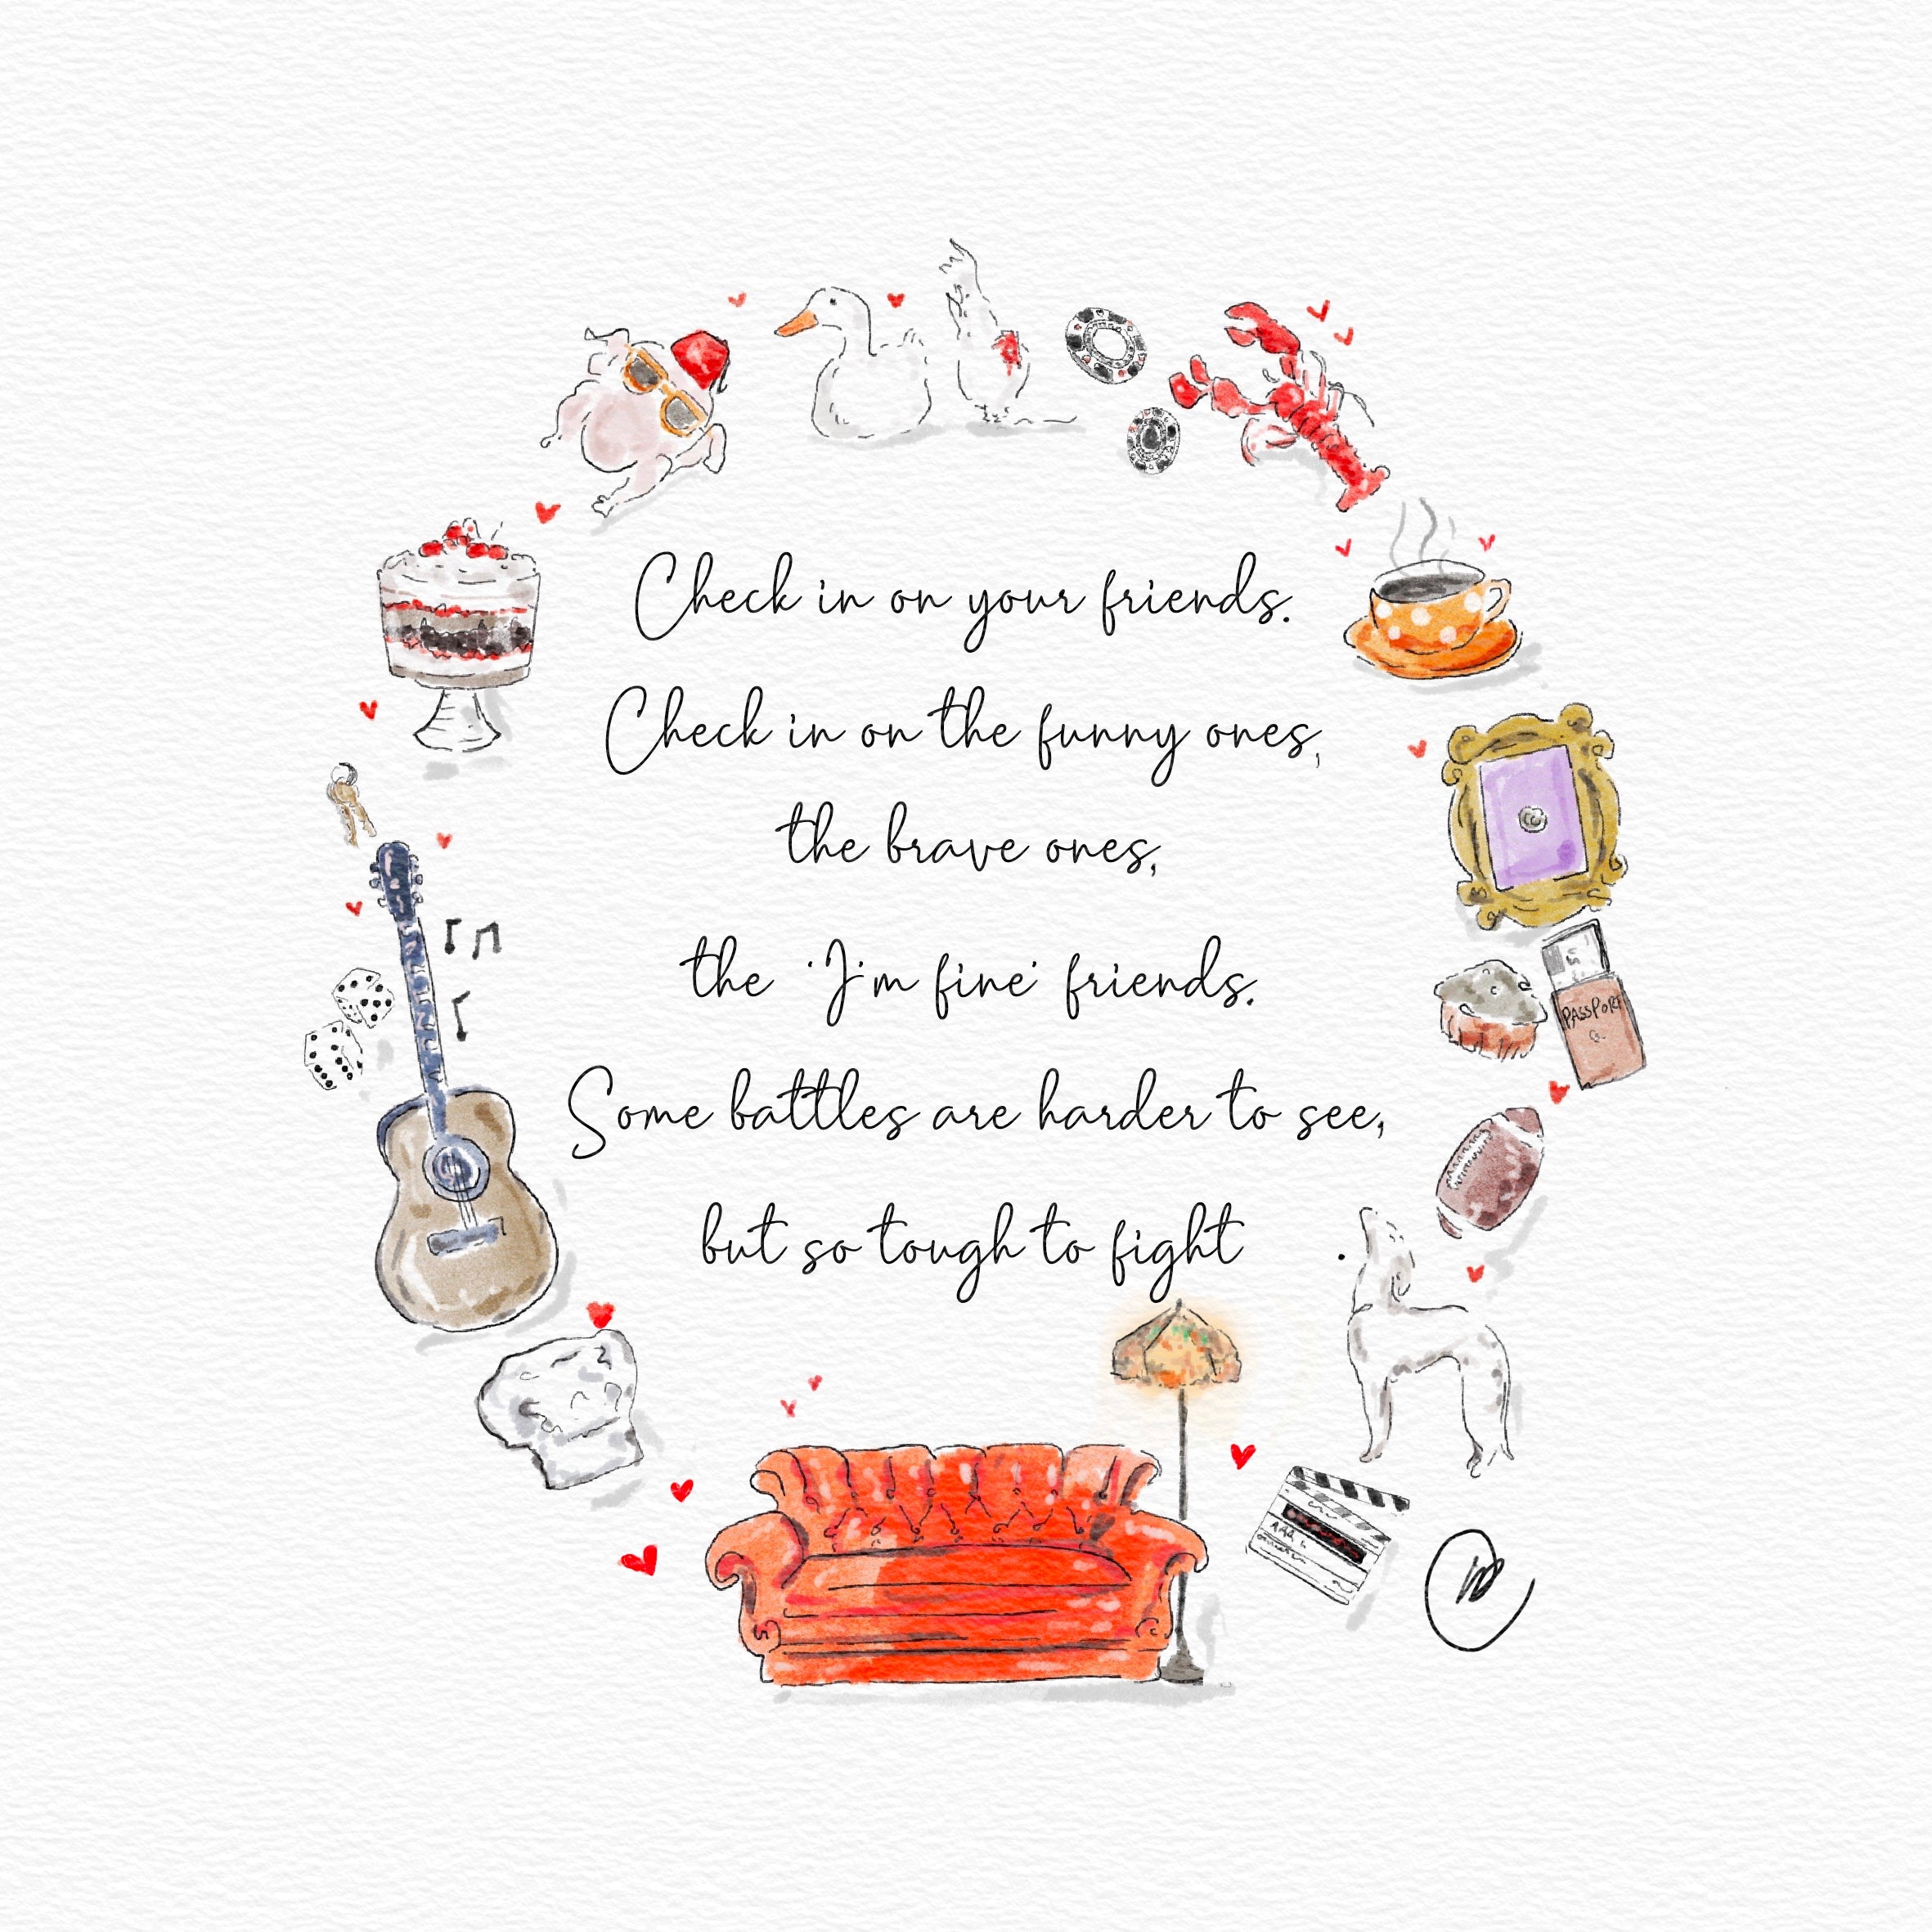 Check in on your friends.
Check in on the funny ones,
the brave ones,
the 'I'm fine' friends.
Some battles are harder to see,
but so tough to fight .
PASSPORT